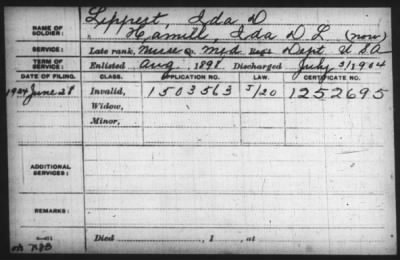 NAME OF SOLDIER: Lippert, Ida D
Hamill, Ida D L (now)
SERVICE: Late rank, Nurse Med. Dept. U S A
TERM OF SERVICE: Enlisted Aug 1898 Discharged July 3/1904
DATE OF FILING. CLASS. APPLICATION NO. LAW. CERTIFICATE NO.
1904 June 28 Invalid, 1503563 J/20 1252695
Widow,
Minor,
ADDITIONAL SERVICES:
REMARKS:
Died , 1 , at